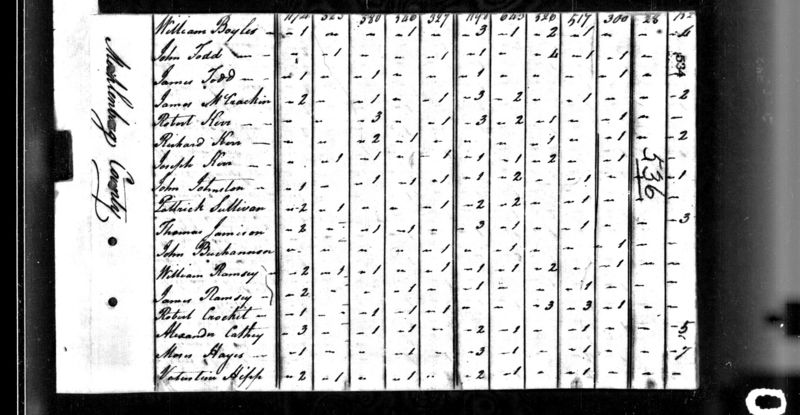 Mecklenburg County
William Bayles - 1 - - - 1 - - 3 - 1 - 2 - 1 - - - 4
John Todd - - 1 - - - 1 - 1 - - 4 - 1 - 1
James Todd - 1 - - 1 - - - 1 - - - - 1
James McCrackin - 2 - - 1 - - 1 - 3 - 2 - - 1 - - - 2
Robert Kerr - - - 3 - - 1 - 3 - 2 - 1 - - 1
Richard Kerr - - - 2 - 1 - - - - 1 - - 1 - 2
Joseph Kerr - - 1 - 1 - - 1 - 1 - 1 - 2 - - 1
John Johnston - 1 - - 1 - 1 - 1 - 2 - - 1 - - 1
Pattrick Sullivan - 2 - 1 - - 1 - - 2 - 2 - - 1
Thomas Jamison - 2 - - 1 - 1 - - 3 - 1 - - 1 - - - 3
John Buchannon - - - - - - - - - 1
William Ramsey - 2 - 1 - 1 - - 1 - 1 - 1 - 2 - - 1
James Ramsey - 2 - - - 1 - - 1 - - - 1
Robert Crocket - 1 - - 1 - 1 - 1 - - - 3 - 3 - 1
Alexander Cathey - 3 - - 1 - 1 - - 2 - 1 - - 1 - - - 5
Moses Hayes - 1 - - - 1 - - 3 - 1 - - 1 - - - 7
Hipp - 2 - 1 - - 1 - - 2 - 1 - - 1
534
536